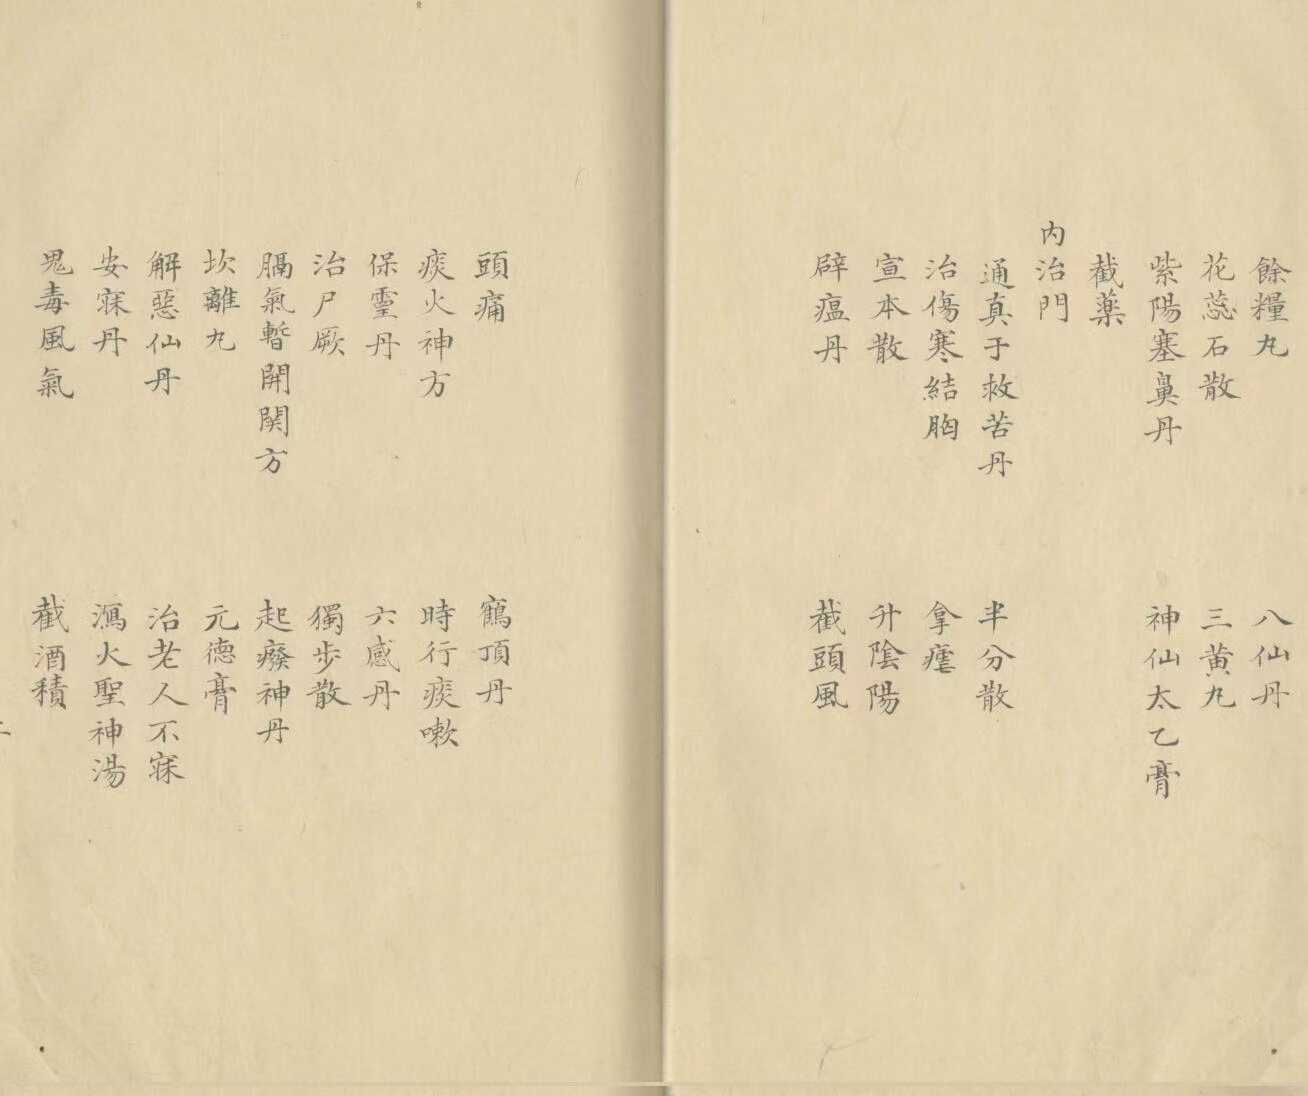 餘糧丸 八仙丹
花蕊石散 三黃丸
紫陽塞鼻丹 神仙太乙膏
截藥
內治門
通真子救苦丹 半分散
治傷寒結胸 拿瘧
宣本散 升陰陽
辟瘟丹 截頭風
頭痛 鶴頂丹
痰火神方 時行痰嗽
保靈丹 六感丹
治尸厥 獨步散
膈氣暫開関方 起癈神丹
坎離丸 元德膏
解惡仙丹 治老人不寐
安寐丹 瀉火聖神湯
鬼毒風氣 截酒積